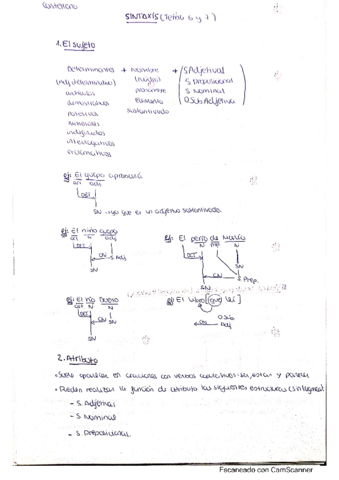 Castellano
SINTAXIS (Tema 6 y 7)
1. El sujeto
Determinantes + Nombre + S. Adjetival
(adj. determinativo) (núcleo) S. Preposicional
artículos pronombre S. Nominal
demostrativos elemento O. Sub. Adjetiva
posesivos sustantivado
numerales
indefinidos
interrogativos
exclamativos
ej: El guapo aprobará
art adj
DET
SN → ya que es un adjetivo sustantivado.
ej: El niño guapo ej: El perro de María
art N adj art N prep N
DET DET
CN S. Adj SN
CN S. Prep.
SN SN
ej: El río Duero ej: El libro [que leí]
art N N
DET CN
CN SN
SN
2. Atributo
• Suele aparecer en oraciones con verbos copulativos: ser, estar y parecer
• Pueden realizar la función de atributo las siguientes estructuras (sintagmas)
- S. Adjetival
- S. Nominal
- S. Preposicional
Escaneado con CamScanner